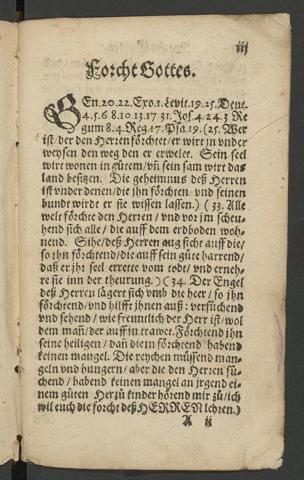 iij
Forcht Gottes.
GEn. 20. 22. Exo. 1. Levit. 19. 25. Deut.
4. 5. 6 8. 10. 13. 17 31. Jos. 4. 24. 3 Re
gum 8. 4. Reg. 17. Psa. 19. (25. Wer
ist der den Herren förchtet/ er wirt jn vnder
weysen den weg den er erwelet. Sein seel
wirt wonen in gütem/ vñ sein sam wirt das
land besitzen. Die geheimnus deß Herren
ist vnder denen/ die jhn förchten/ vnd seinen
bundt wirdt er sie wissen lassen.) ( 33. Alle
welt förchte den Herren/ vnd vor jm scheu-
hend sich alle/ die auff dem erdboden woh-
nend. Sihe/ deß Herren aug sicht auff die/
so jhn förchtend/ die auff sein güte harrend/
daß er jhr seel errette vom todt/ vnd erneh-
re sie inn der theurung.) ( 34. Der Engel
deß Herren lägert sich vmb die heer/ so jhn
förchtend/ vnd hilfft jhnen auß: versüchend
vnd sehend/ wie freundlich der Herr ist/ wol
dem mañ/ der auff in trawet. Förchtend jhn
seine heiligen/ dañ die in förchtend habend
keinen mangel. Die reychen müssend man-
geln vnd hungern/ aber die den Herren sü-
chend/ habend keinen mangel an jrgend ei-
nem güten Herzü kinder hörend mir zü/ ich
wil euch die forcht deß HERREN lehren.)
A ij